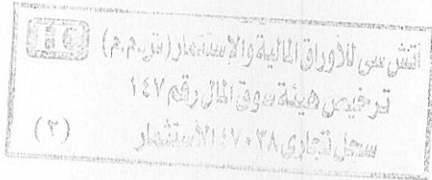 HC
اتش سى للأوراق المالية والاستثمار (ش.م.م)
ترخيص هيئة سوق المال رقم ١٤٧
سجل تجارى ٤٧٠٣٨ الاستثمار
(٢)